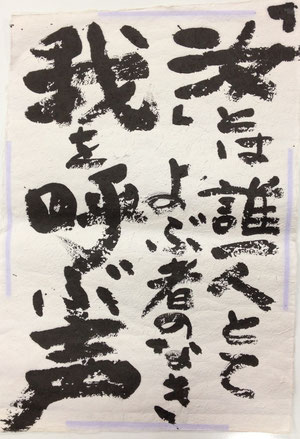 「汝」とは誰一人とて
よぶ者のなき
我を呼ぶ声